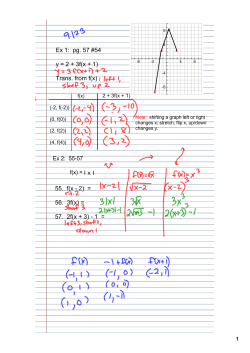 9/23
Ex 1: pg. 57 #54
y = 2 + 3f(x + 1)
y = 3f(x+1) + 2
Trans. from f(x): left 1,
stret 3, up 2
f(x) 2 + 3f(x + 1)
(-2, f(-2)) (-2,-4) (-3, -10)
(0, f(0)) (0,0) (-1, 2)
(2, f(2)) (2,2) (1, 8)
(4, f(4)) (4,0) (3, 2)
Note: shifting a graph left or right
changes x; stretch, flip x, up/down
changes y.
Ex 2: 55-57
f(x) = |x| f(x)=√x f(x)=x³
55. f(x - 2) = |x-2| √x-2 (x-2)³
rt. 2
56. 3f(x) = 3|x| 3√x 3x³
stret 3
57. 2f(x + 3) - 1 = 2|x+3|-1 2√x+3 -1 2(x+3)³-1
left 3, stret 2,
down 1
f(x) -1+f(x) f(x+1)
(-1,1) (-1,0) (-2,1)
(0,1) (0,0)
(1,0) (1,-1)
1